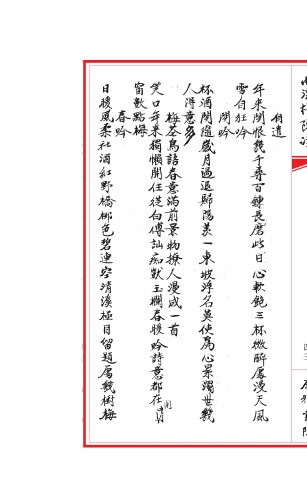 自遣
年來閒恨幾千尋百鍊長磨此日心軟飽三杯微醉處漫天風
雪自狂吟
閒吟
杯酒閒隨歲月過退歸陽羨一東坡浮名莫使為心累濁世幾
人得意多
梅茶鳥語春意滿前景物撩人漫成一首
笑口年來獨懶開任從白傅訕痴獃玉欄春暖吟詩意都在閒
窗數點梅
春吟
日暖風柔社酒紅野橋柳色碧連空清溪極目留題處幾樹梅